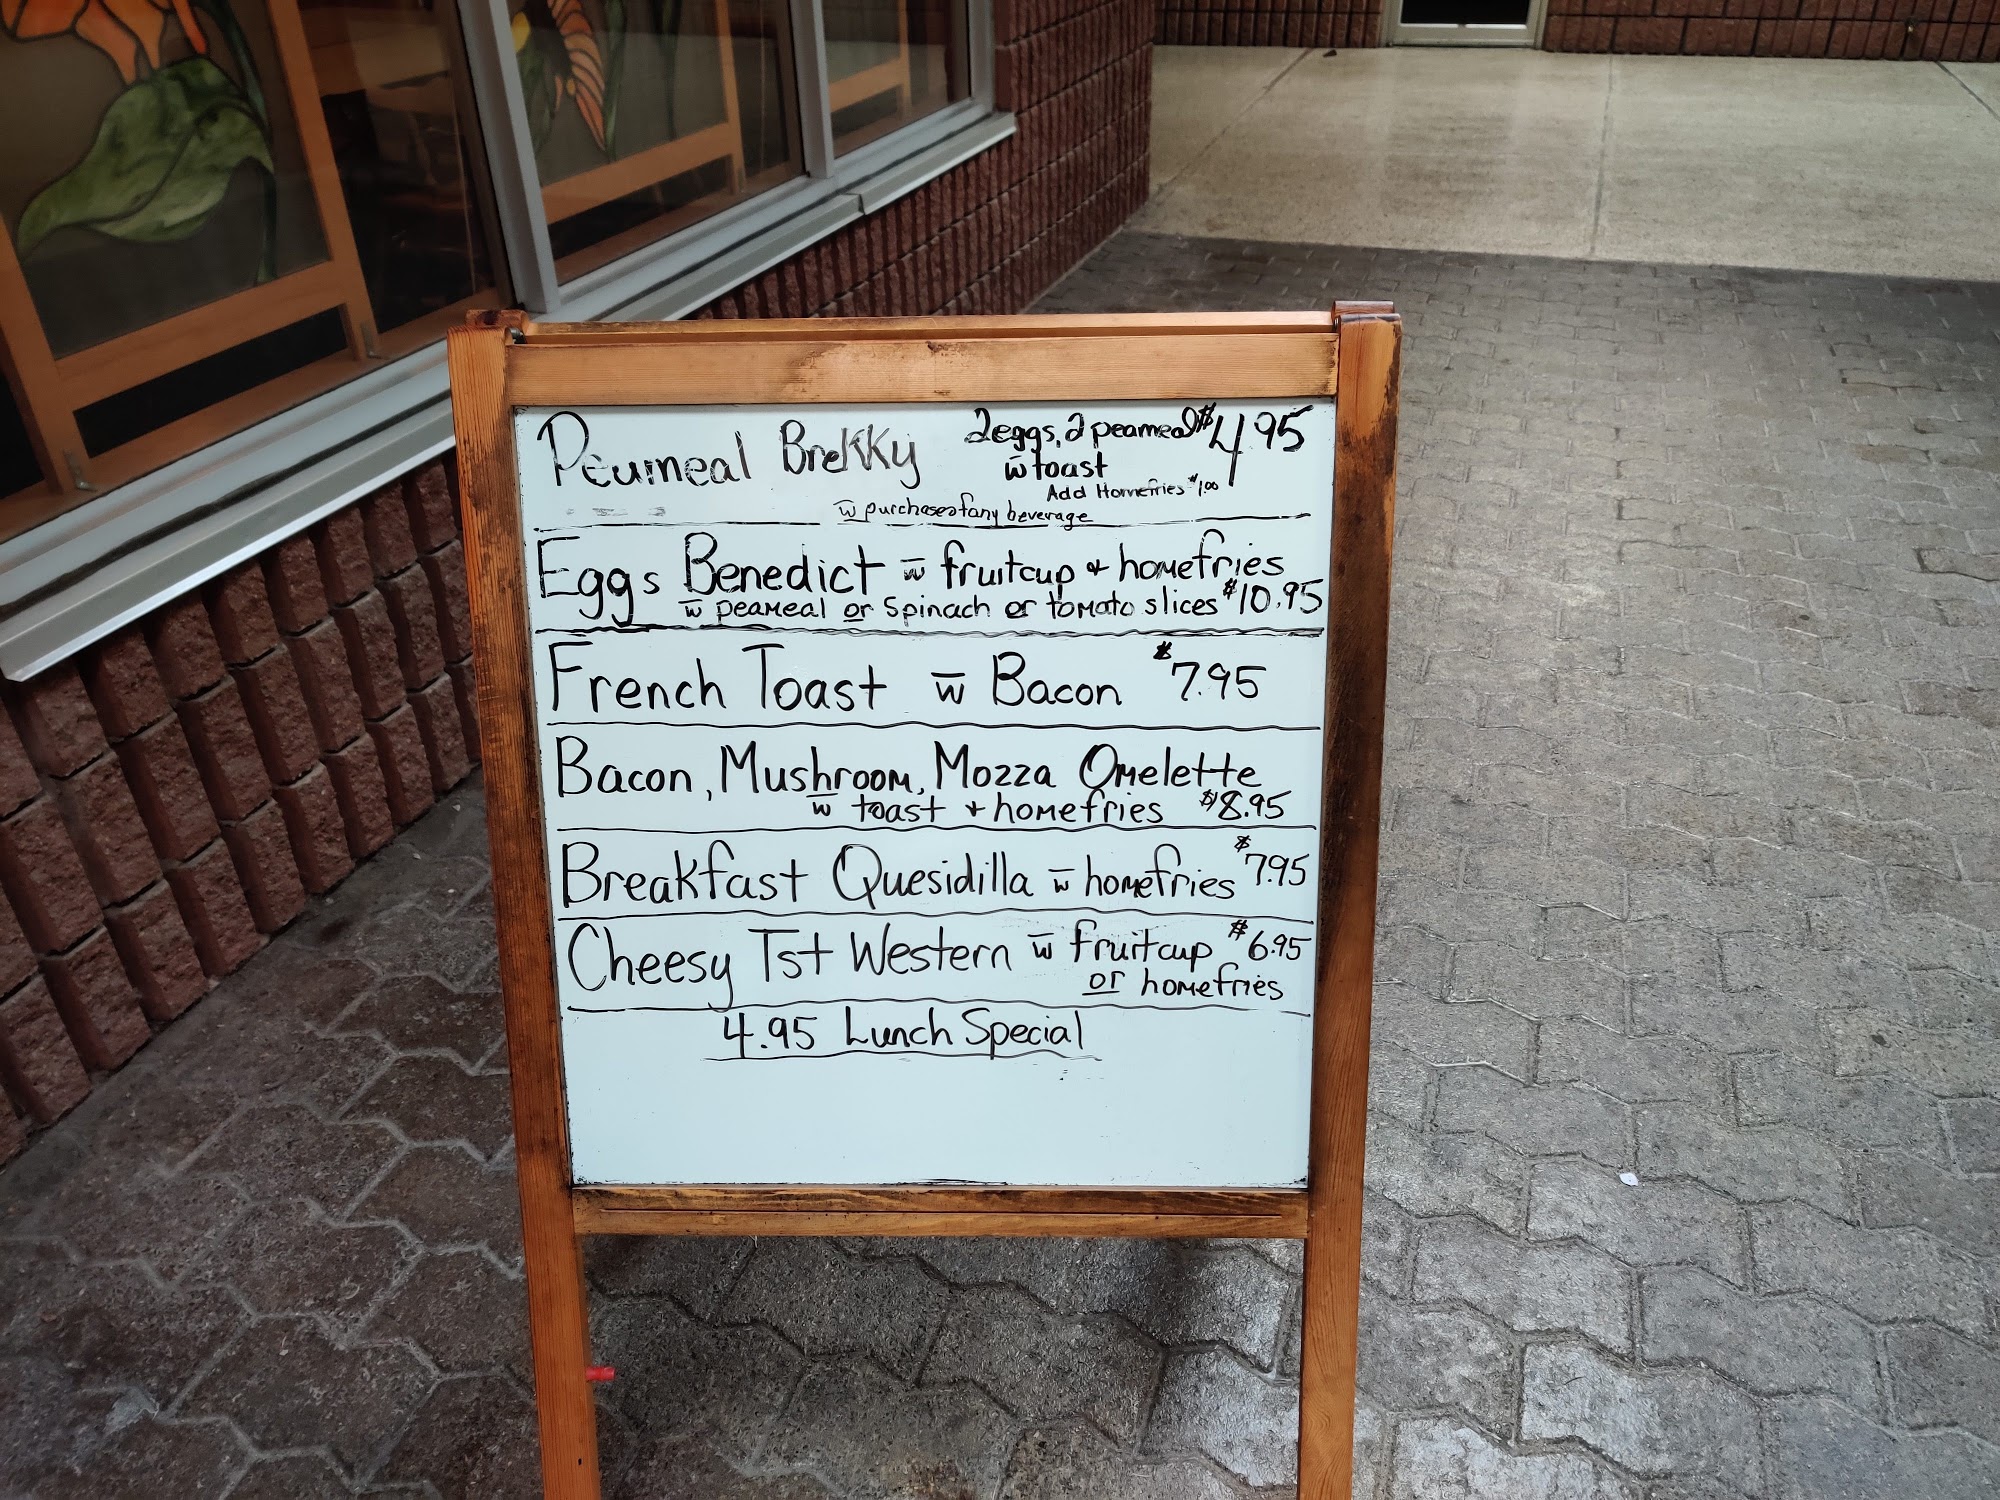 Peameal Brekky 2 eggs, 2 peameal $4.95
w̄ toast
Add Homefries $1.00
w̄ purchase of any beverage
Eggs Benedict w̄ fruitcup + homefries
w̄ peameal or spinach or tomato slices $10.95
French Toast w̄ Bacon $7.95
Bacon, Mushroom, Mozza Omelette
w̄ toast + homefries $8.95
Breakfast Quesidilla w̄ homefries $7.95
Cheesy Tst Western w̄ fruitcup $6.95
or homefries
4.95 Lunch Special